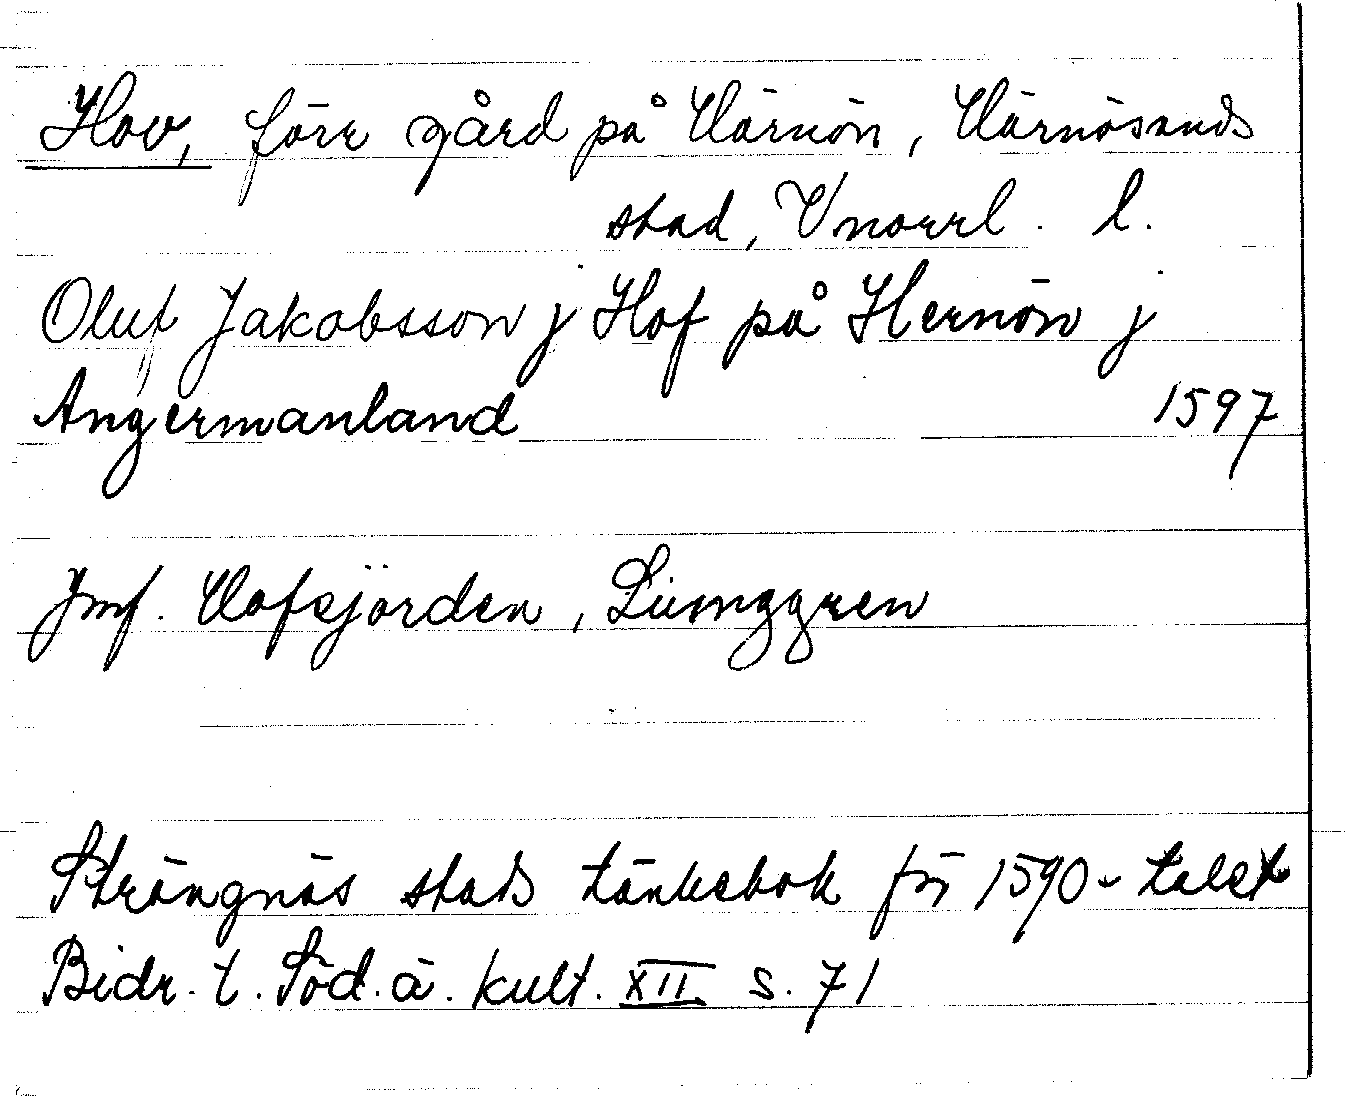 Hov, förr gård på Härnön, Härnösands
stad, Vnorrl. l.
Oluf Jakobsson j Hof på Hernön j
Angermanland 1597
Jmf. Hofsjorden, Liunggren
Strängnäs stads tänkebok fr 1590-talet
Bidr. t. Söd. ä. kult. XII s. 71